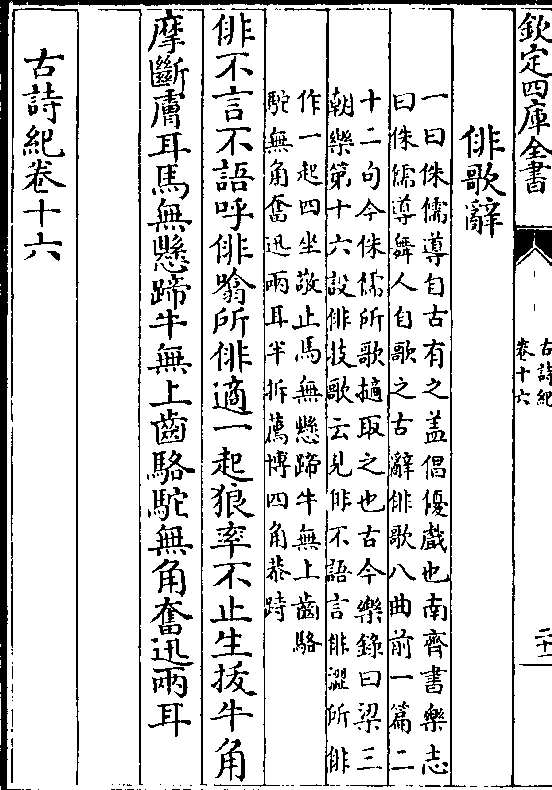 欽定四庫全書
古詩紀
卷十六
二十一
俳歌辭
一曰侏儒導自古有之盖倡優戲也南齊書樂志
曰侏儒導舞人自歌之古辭俳歌八曲前一篇二
十二句今侏儒所歌擿取之也古今樂錄曰梁三
朝樂第十六設俳技歌云見俳不語言俳澀所俳
作一起四坐敬止馬無懸蹄牛無上齒駱
駝無角奮迅兩耳半拆薦博四角恭跱
俳不言不語呼俳噏所俳適一起狼率不止生拔牛角
摩斷膚耳馬無懸蹄牛無上齒駱駝無角奮迅兩耳
古詩紀卷十六